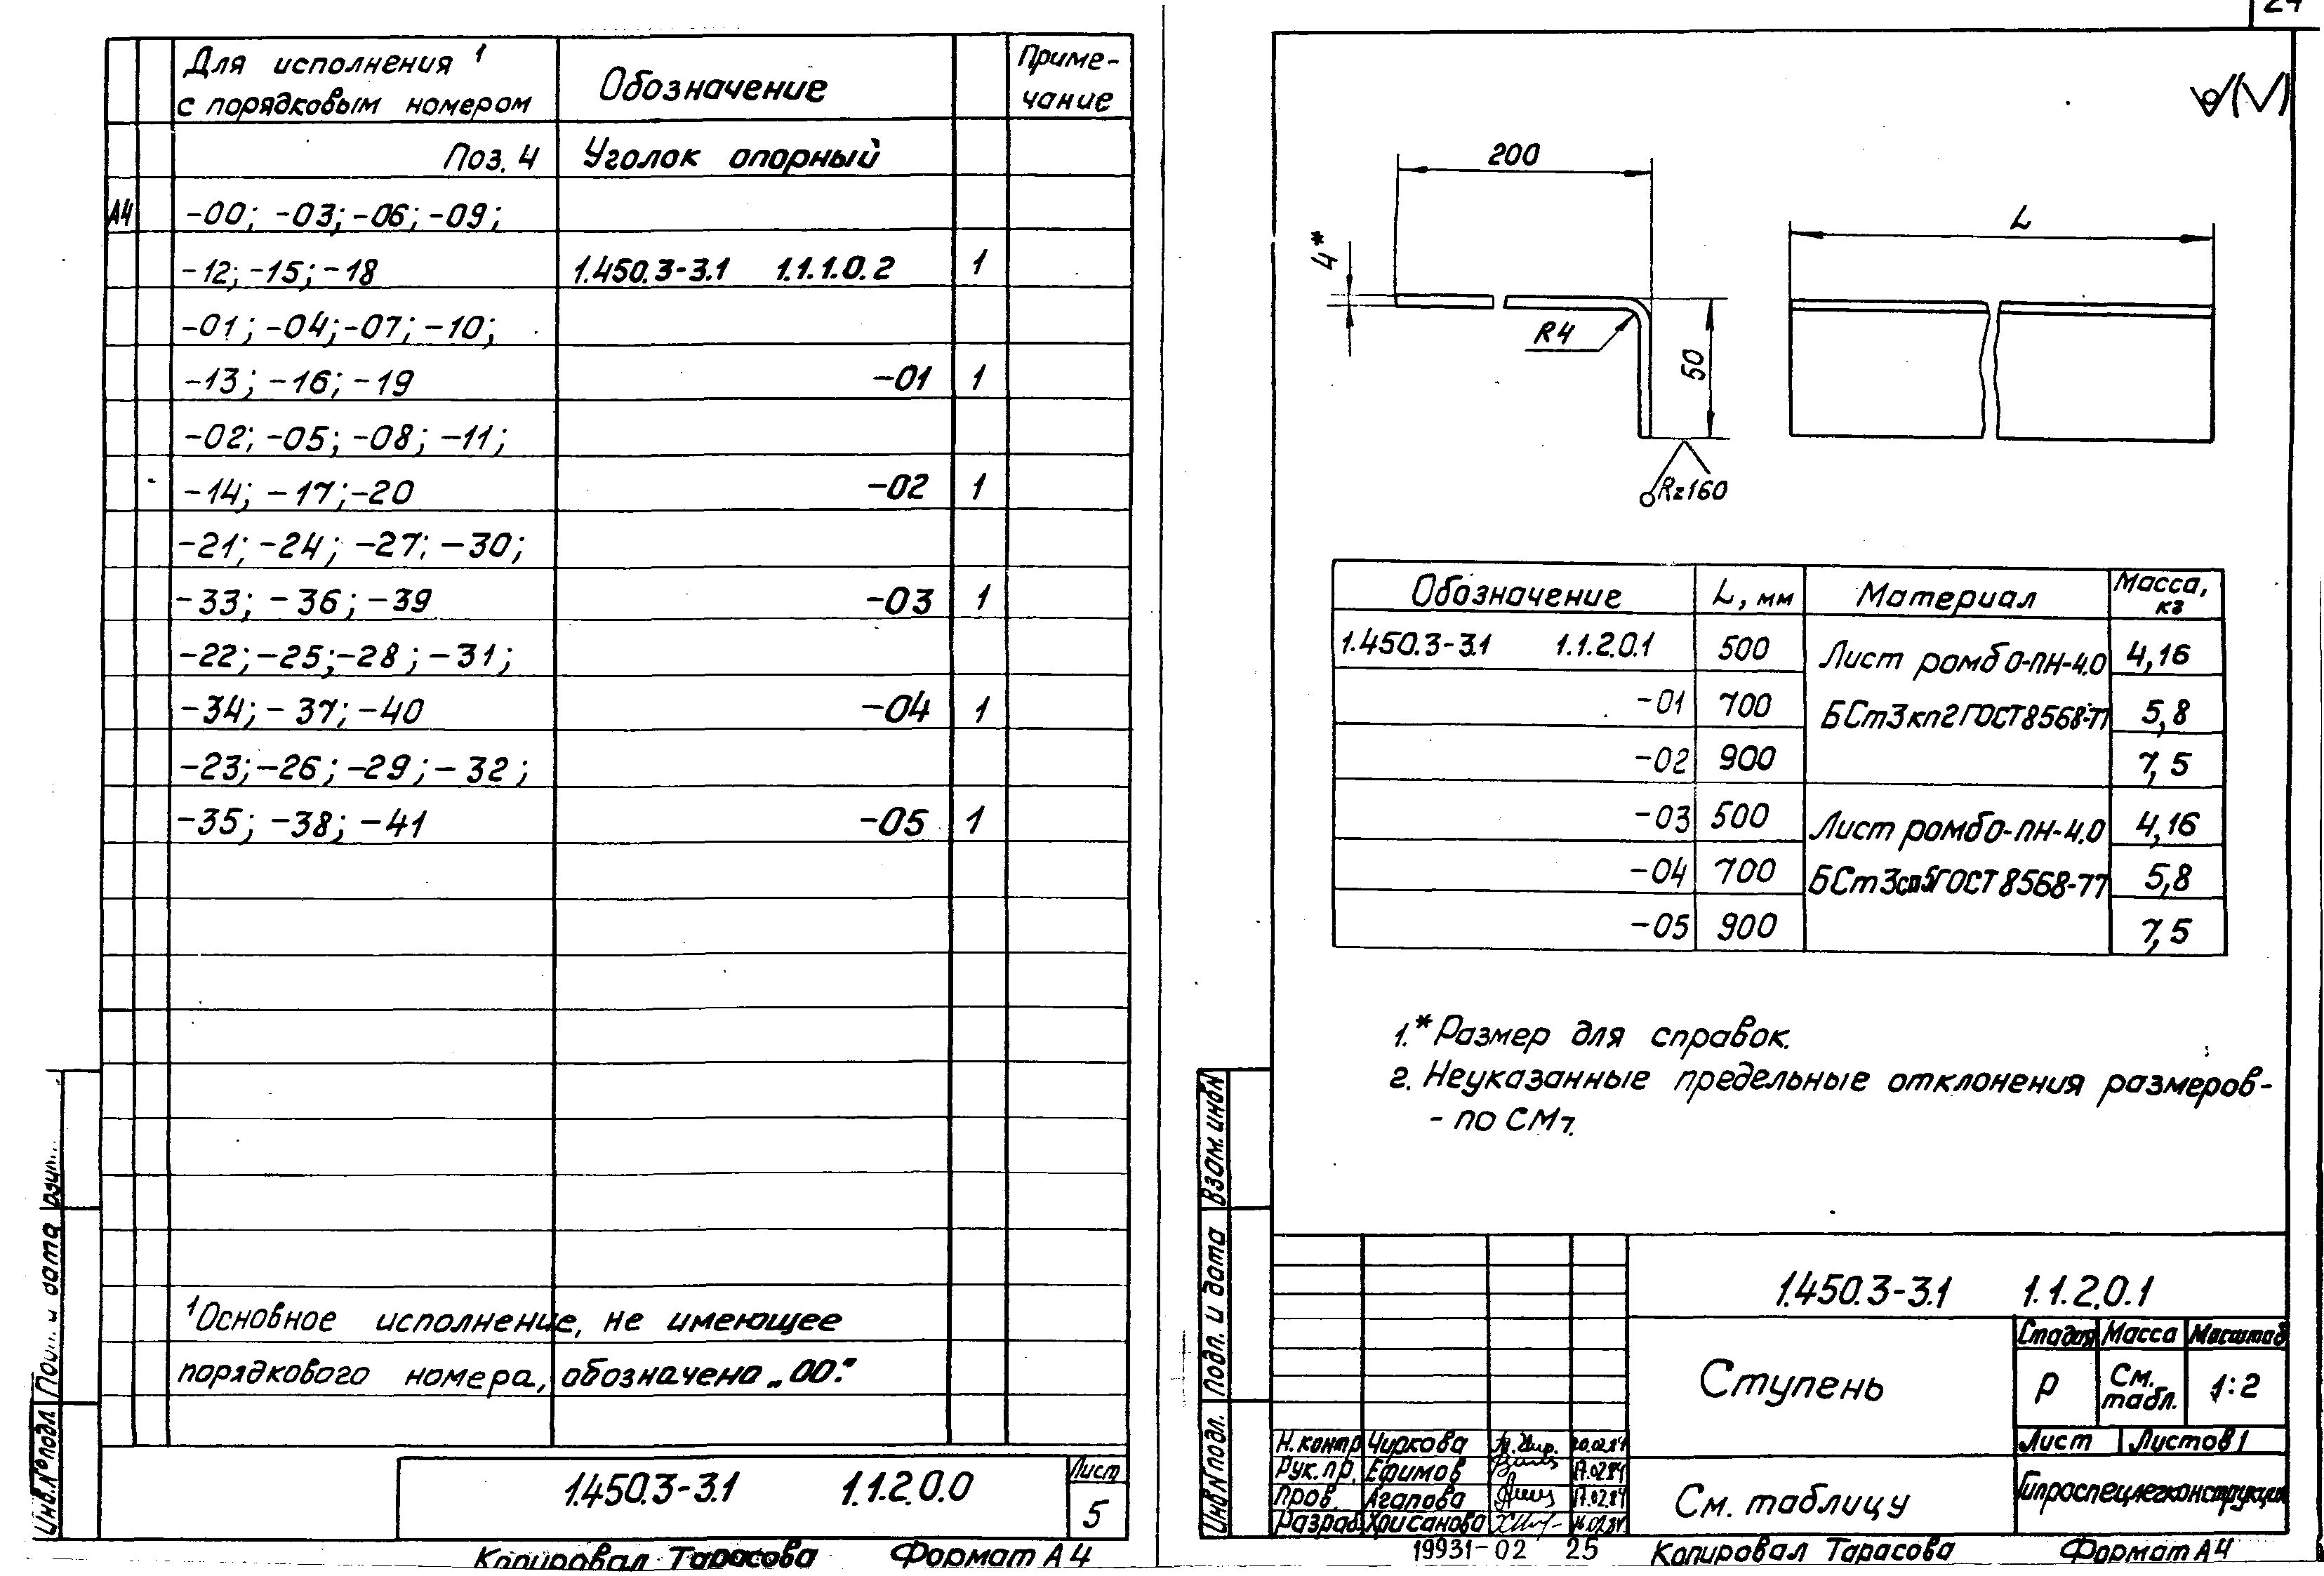 Для исполнения ¹
с порядковым номером
Обозначение
Приме-
чание
Поз. 4 Уголок опорный
А4 -00; -03; -06; -09;
-12; -15; -18 1.450.3-3.1 1.1.1.0.2 1
-01; -04; -07; -10;
-13; -16; -19 -01 1
-02; -05; -08; -11;
-14; -17; -20 -02 1
-21; -24; -27; -30;
-33; -36; -39 -03 1
-22; -25; -28; -31;
-34; -37; -40 -04 1
-23; -26; -29; -32;
-35; -38; -41 -05 1
¹Основное исполнение, не имеющее
порядкового номера, обозначено „00".
Инв.№подл. и дата
1.450.3-3.1 1.1.2.0.0
Лист
5
Копировал Тарасова Формат А4
24
200
4*
R4
50
Rz160
L
Обозначение L, мм Материал Масса, кг
1.450.3-3.1 1.1.2.0.1 500 Лист ромб О-ПН-4.0 4,16
-01 700 БСт3кп2 ГОСТ 8568-77 5,8
-02 900 7,5
-03 500 Лист ромб О-ПН-4.0 4,16
-04 700 БСт3сп5 ГОСТ 8568-77 5,8
-05 900 7,5
1.* Размер для справок.
2. Неуказанные предельные отклонения размеров-
- по СМ7.
Взам. инв№
Подп. и дата
Инв.№подл.
1.450.3-3.1 1.1.2.0.1
Ступень
Стадия Масса Масштаб
Р См. табл. 1:2
Лист Листов 1
Н.контр Чиркова 20.02.84
Рук.пр. Ефимов 17.02.84
Пров. Агапова 17.02.84
Разраб. Хрисанова 16.02.84
См. таблицу
Гипроспецлегконструкция
19931-02 25
Копировал Тарасова Формат А4